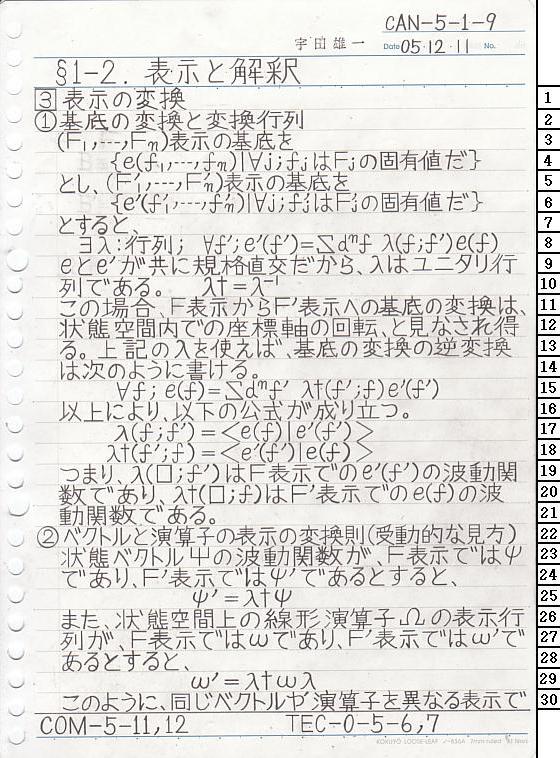 CAN-5-1-9
宇田雄一 Date 05・12・11 No.
§1-2. 表示と解釈
③ 表示の変換
① 基底の変換と変換行列
(F1,---,Fn)表示の基底を
{e(f1,---,fn)|∀j;fjはFjの固有値だ}
とし、(F'1,---,F'n)表示の基底を
{e'(f'1,---,f'n)|∀j;f'jはF'jの固有値だ}
とすると、
∃λ:行列; ∀f';e'(f')=∑dⁿf λ(f;f')e(f)
eとe'が共に規格直交だから、λはユニタリ行
列である。 λ†=λ⁻¹
この場合、F表示からF'表示への基底の変換は、
状態空間内での座標軸の回転、と見なされ得
る。上記のλを使えば、基底の変換の逆変換
は次のように書ける。
∀f;e(f)=∑dⁿf' λ†(f';f)e'(f')
以上により、以下の公式が成り立つ。
λ(f;f')=<e(f)|e'(f')>
λ†(f';f)=<e'(f')|e(f)>
つまり、λ(□;f')はF表示でのe'(f')の波動関
数であり、λ†(□;f)はF'表示でのe(f)の波
動関数である。
② ベクトルと演算子の表示の変換則(受動的な見方)
状態ベクトルΨの波動関数が、F表示ではψ
であり、F'表示ではψ'であるとすると、
ψ'=λ†ψ
また、状態空間上の線形演算子Ωの表示行
列が、F表示ではωであり、F'表示ではω'で
あるとすると、
ω'=λ†ωλ
このように、同じベクトルや演算子を異なる表示で
COM-5-11,12 TEC-0-5-6,7
KOKUYO LOOSE-LEAF ノ-836A 7mm ruled
1
2
3
4
5
6
7
8
9
10
11
12
13
14
15
16
17
18
19
20
21
22
23
24
25
26
27
28
29
30